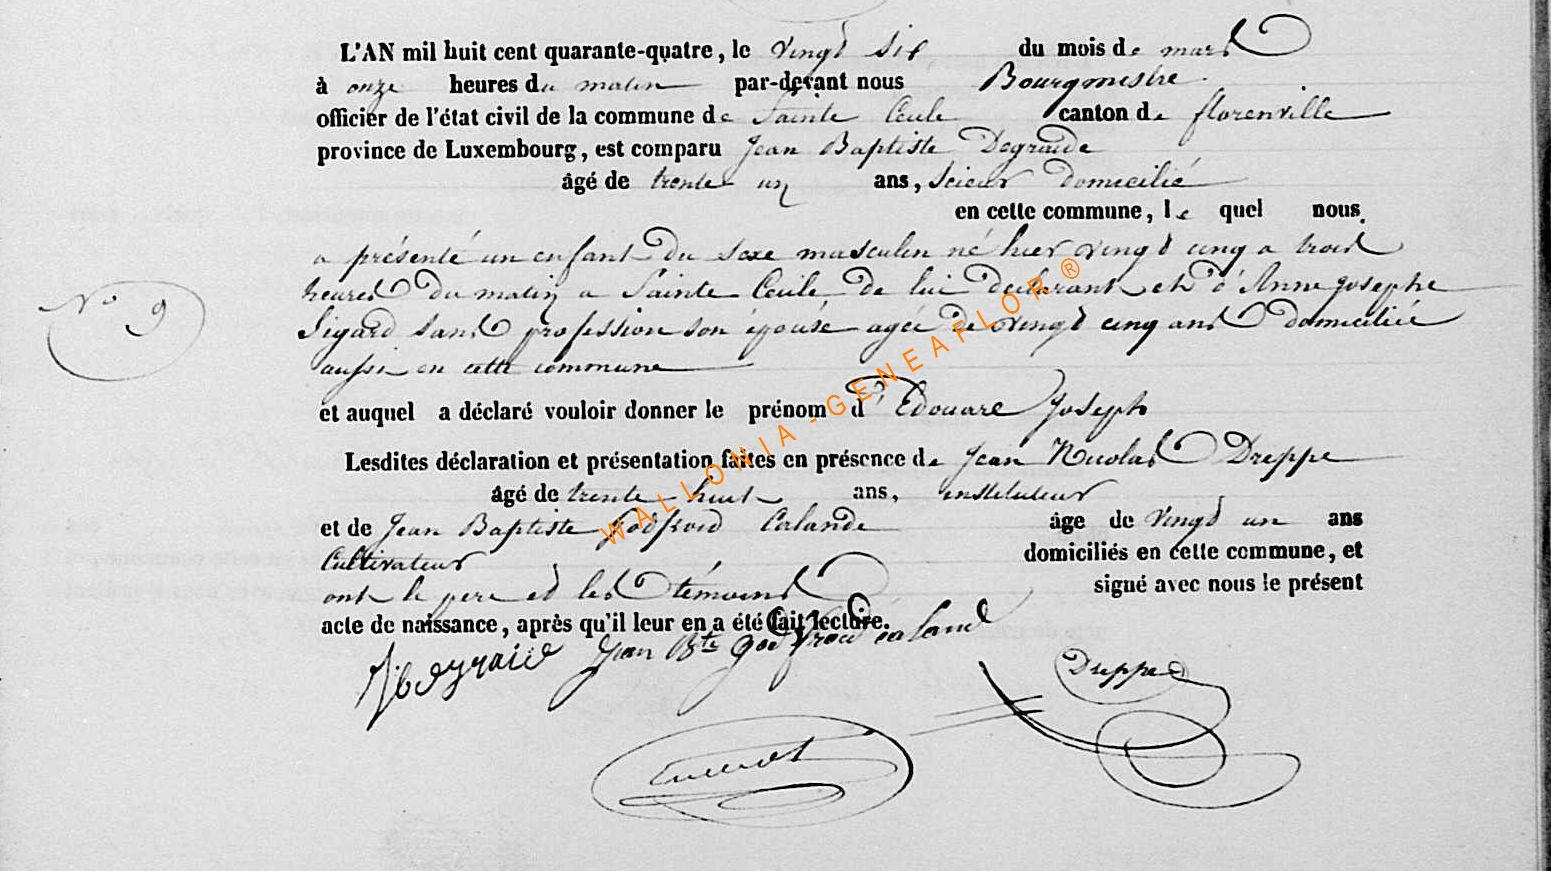 L'AN mil huit cent quarante-quatre, le vingt Six du mois de mars
à onze heures du matin par-devant nous Bourgmestre
officier de l'état civil de la commune de Sainte Cecile canton de florenville
province de Luxembourg, est comparu Jean Baptiste Degraide
âgé de trente un ans, Scieur domicilié
en cette commune, le quel nous
a présenté un enfant du sexe masculin né hier vingt cinq a trois
heures du matin a Sainte Cecile de lui declarant et d'Anne Josephe
Sigard sans profession son épouse agée de vingt cinq ans domiciliée
aussi en cette commune
N° 9
et auquel a déclaré vouloir donner le prénom d'Edouard Joseph
Lesdites déclaration et présentation faites en présence de Jean Nicolas Dreppe
âgé de trente huit ans, instituteur
et de Jean Baptiste Godfroid Calande âge de vingt un ans
Cultivateur domiciliés en cette commune, et
ont le pere et les témoins signé avec nous le présent
acte de naissance, après qu'il leur en a été fait lecture.
JB degraide Jean Bte godfroid caland Dreppe
WALLONIA-GENEAFLOR ®